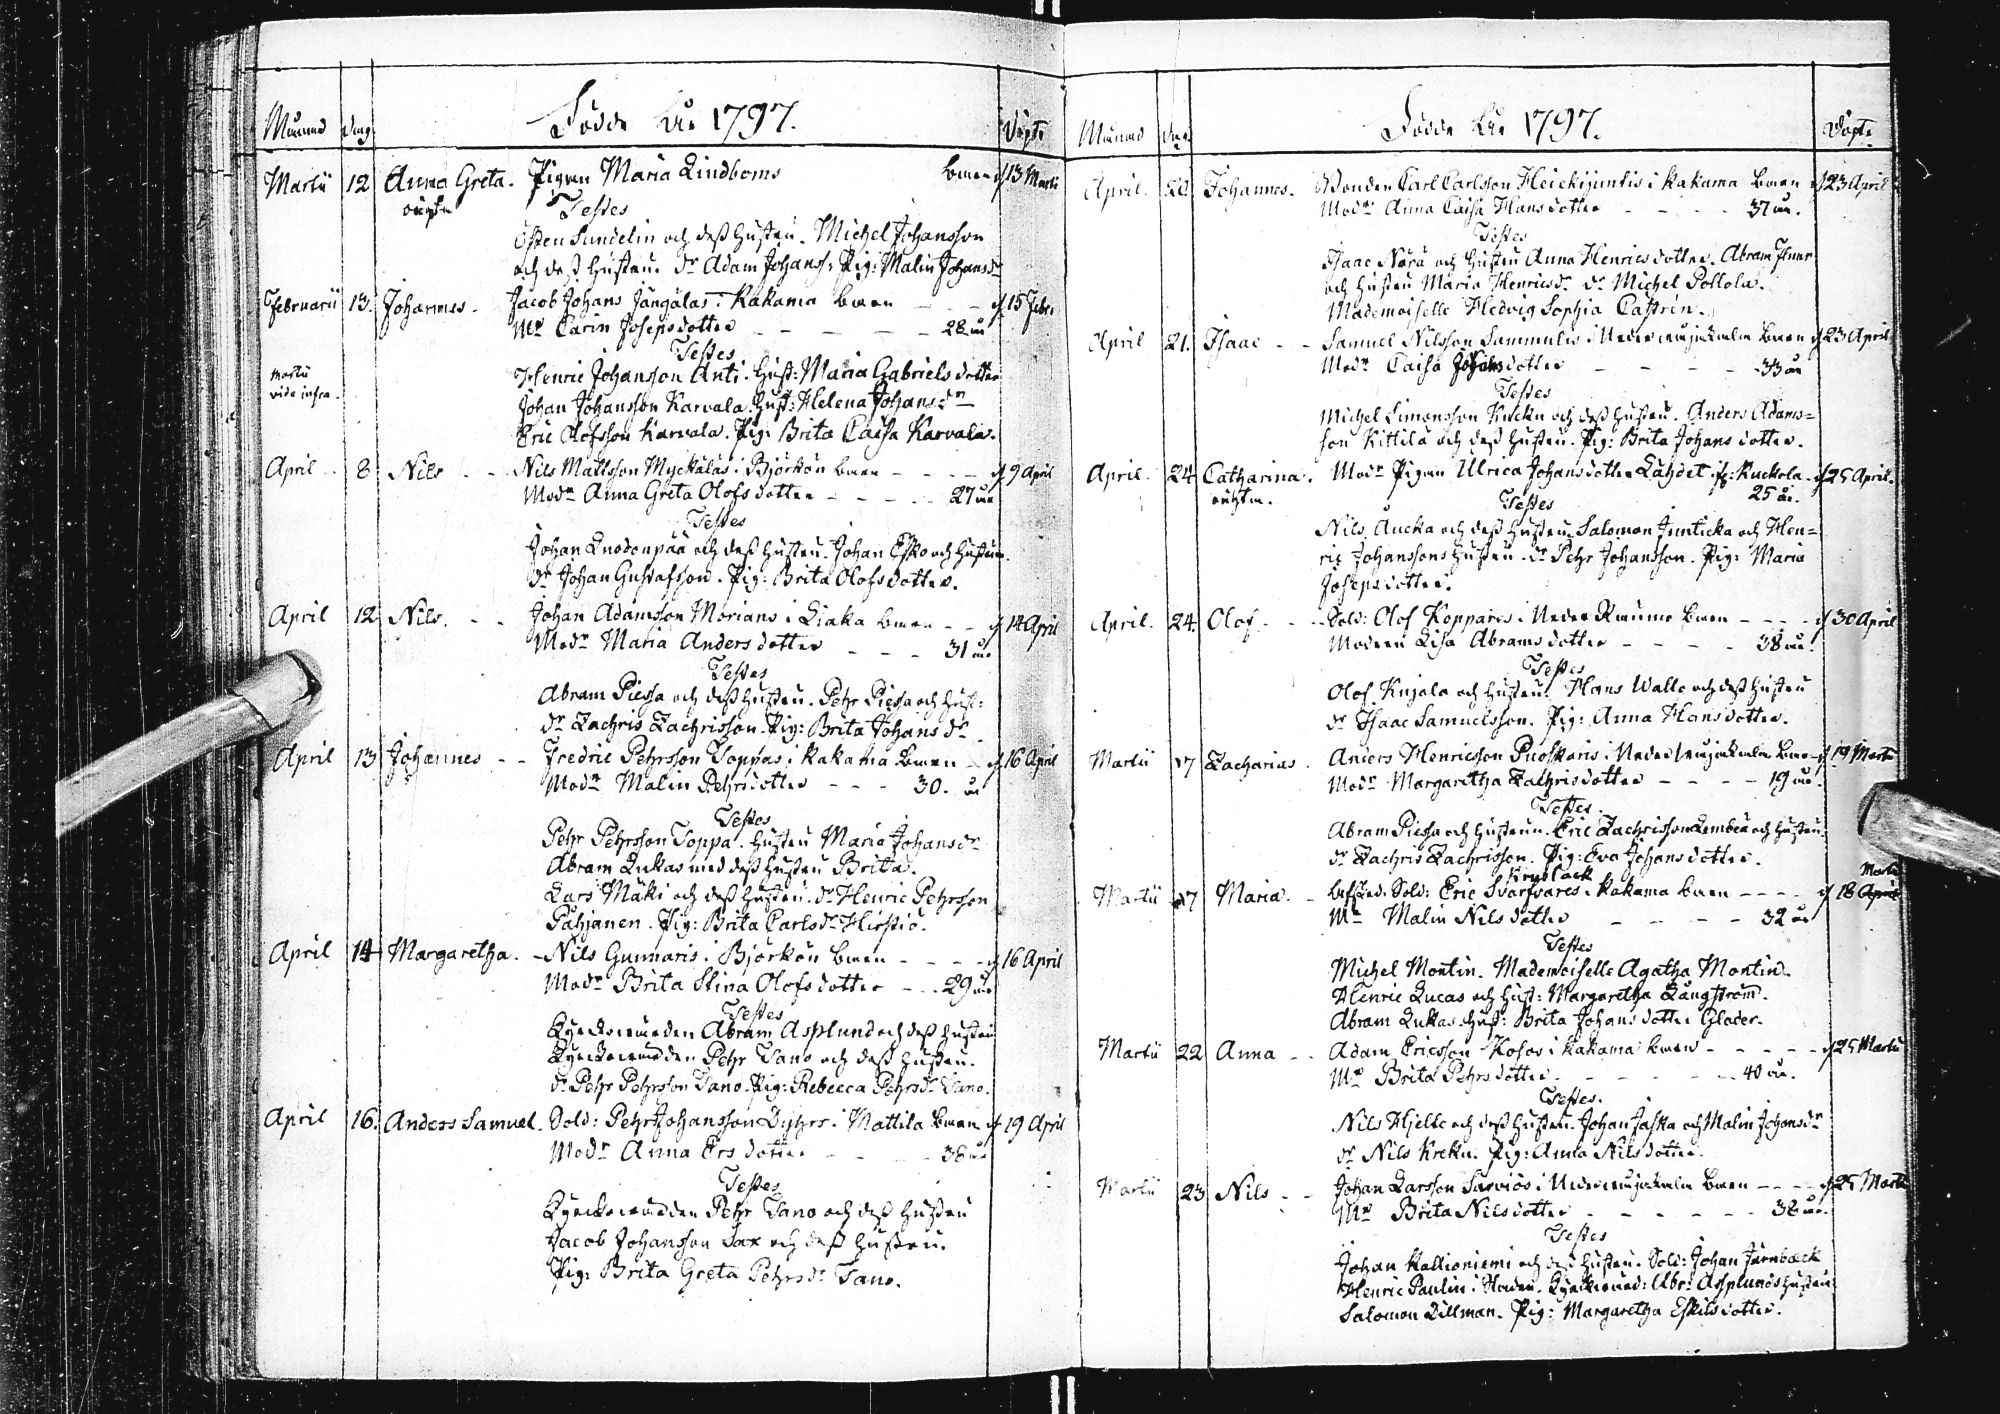 Månad Dag Födde År 1797. Döpte
Martii 12 Anna Greta. Pigan Maria Lindboms barn d. 13 Martii
oägta Testes
Östen Sundelin och dess hustru. Michel Johansson
och dess hustru. Dr. Adam Johanss: Pig: Malin Johansdr
Februarii 13. Johannes. Jacob Johans Jängäläs i Kakama barn d. 15 Febr.
Mr Carin Josephsdotter 28 år
Testes
Martii Henric Johansson Anti. Hust: Maria Gabrielsdotter
vide infra. Johan Johansson Karvala. Hust: Helena Johansdr
Eric Olofsson Karvala. Pig: Brita Caisa Karvala.
April 8 Nils Nils Mattsson Myckäläs i Björkön barn d. 9 April
Modr Anna Greta Olofsdotter 27 år
Testes
Johan Knodonpää och dess hustru. Johan Esko och hustru.
Dr Johan Gustafsson. Pig: Brita Olofsdotter.
April 12 Nils. Johan Adamsson Morians i Liaka barn d. 14 April
Modr Maria Andersdotter 31 år
Testes
Abram Piessa och dess hustru. Pehr Piessa och hust:
dr Zachris Zachrisson. Pig: Brita Johansdr.
April 13 Johannes Fredric Pehrsson Toppas i Kakama Barn d. 16 April
Modr Malin Pehrsdotter 30. år
Testes
Pehr Pehrsson Toppa. hustru Maria Johansdr
Abram Lukas med dess hustru Brita.
Lars Mäki och dess hustru. dr Henric Pehrsson
Pähjanen. Pig: Brita Carlsdr Hirstiö.
April 14 Margaretha. Nils Gunnaris i Björkön barn d. 16 April
Modr Brita Stina Olofsdotter 29 år
Testes
Kyrckowärden Abram Asplund och dess hustru
Kyrckowärden Pehr Tano och dess hustru.
dr Pehr Pehrsson Tano. Pig: Rebecca Pehrsdr Tano.
April 16. Anders Samuel. Sold: Pehr Johansson Dyhrs i Mattila barn d. 19 April
Modr Anna Ersdotter 38 år
Testes
Kyrckowärden Pehr Tano och dess hustru
Jacob Johansson Sax och dess hustru.
Pig: Brita Greta Pehrsdr Tano.
Månad Dag Födde År 1797. Döpte
April 20. Johannes. Bonden Carl Carlsson Heickijuntis i Kakama barn d. 23 April
Modr Anna Caisa Hansdotter 37 år.
Testes
Isaac Nara och hustru Anna Henricsdotter. Abram
och hustru Maria Henricsdr. dr Michel Pollola.
Mademoiselle Hedvig Sophia Castrén.
April 21. Isaac Samuel Nilsson Sammulis i barn d. 23 April.
Modr Caisa Johansdotter 33 år
Testes
Michel Simonsson Kucku och dess hustru. Anders Adams=
son Kittilä och dess hustru. Pig: Brita Johansdotter.
April. 24 Catharina. Modr Pigan Ulrica Johansdotter Lähdet. Kuckola d. 25 April.
oächta. 25 år.
Testes
Nils Aucka och dess hustru. Salomon Junticka och Hen=
ric Johanssons hustru. dr Pehr Johansson. Pig: Maria
Josepsdotter.
April. 24. Olof Sold: Olof Koppares i Neder Raumo barn d. 30 April
Modren Lisa Abramsdotter 38 år.
Testes
Olof Kujala och hustru. Hans Wallo och dess hustru
dr Isaac Samuelsson. Pig: Anna Hansdotter.
Martii 17 Zacharias. Anders Henricsson Puoskaris i barn d. 19 Martii
Modr Margaretha Zachrisdotter 19 år.
Testes.
Abram Piessa och hustrun. Eric Zachrisson Lembea och hustru.
dr Zachris Zachrisson. Pig: Eva Johansdotter.
Martii
Martii 17 Maria. Sold: Eric Svarfvares i Kakama barn d. 18 April
Mr Malin Nilsdotter 32 år
Testes
Michel Montin. Mademoiselle Agatha Montin.
Henric Lucas och hust: Margaretha Långström.
Abram Lukas hust: Brita Johansdotter Glader.
Martii 22 Anna Adam Ericsson Kosos i Kakama barn d. 25 Martii
Mr Brita Pehrsdotter 40 år.
Testes.
Nils Hjelte och dess hustru. Johan Jaska och Malin Johansdr
dr Nils Kreku. Pig: Anna Nilsdotter.
Martii 23 Nils Johan Larsson Sarviös i barn d. 25 Martii
Mr Brita Nilsdotter 38 år.
Testes
Johan Kallioniemi och dess hustru. Sold: Johan Jernbäck
Henric Paulin i Kyrckowärd: Abr: Asplunds hustru
Salomon Dillman. Pig: Margaretha Eskilsdotter.